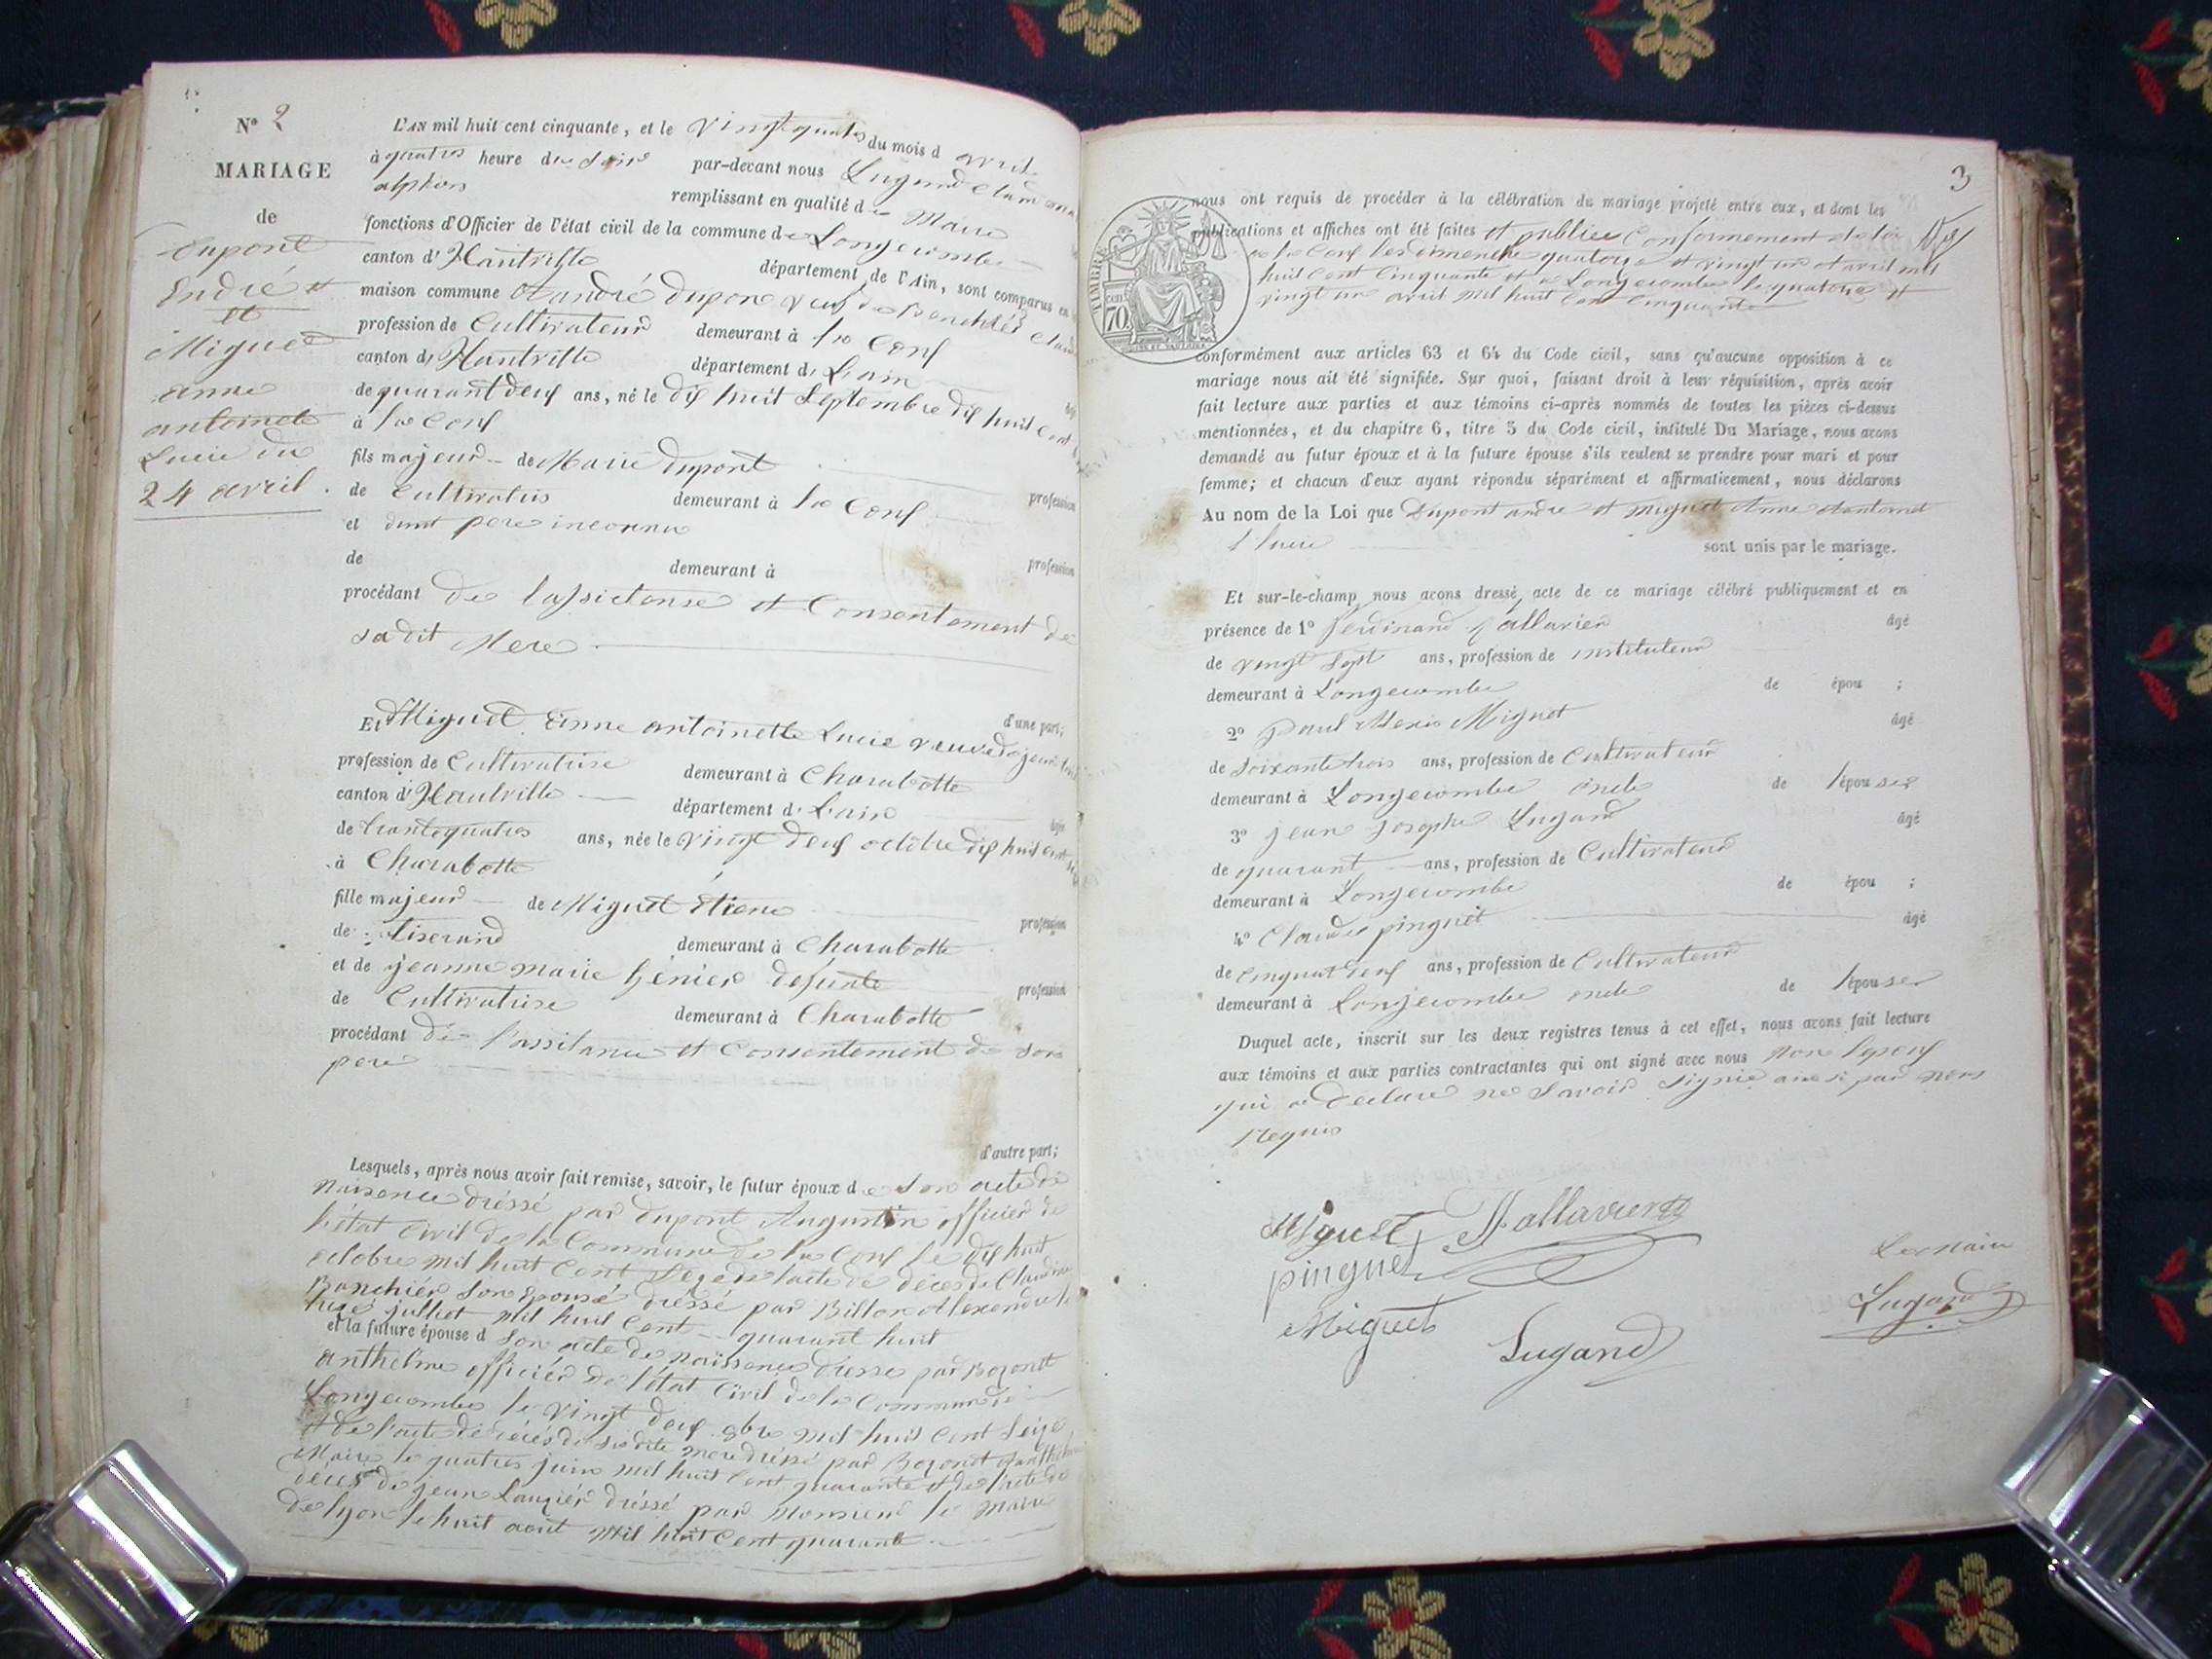 N° 2
MARIAGE
de
Dupont
André et
et
Miguet
anne
antoinete
Lucie du
24 avril.
L'AN mil huit cent cinquante, et le vingtquatre du mois d avril
à quatres heure du soire par-devant nous Lugand Claude
alphons remplissant en qualité de Maire
fonctions d'Officier de l'état civil de la commune de Longecombe
canton d'Hautville département de l'Ain, sont comparus en
maison commune André Dupont veuf de
profession de Cultivateur demeurant à la Couf
canton d'Hautville département de l'ain
de quarant deux ans, né le dix huit Septembre dix huit cent
à la Couf
fils majeur de Marie Dupont profession
de Cultivatris demeurant à la Couf
et dunt pere inconnu
de demeurant à profession
procédant de lassictense et Consentement de
sadit Mere
d'une part;
Et Miguet anne antoinette Lucie veuve de jean
profession de Cultivatrise demeurant à Charabotte
canton d'Hautville département d. Lain
de trantequatres ans, née le vingt deux octobre dix huit cent
à Charabotte
fille majeur de Miguet Étiene profession
de tiserand demeurant à Charabotte
et de jeanne marie Génier defunte profession
de Cultivatrise demeurant à Charabotte
procédant de l'assitance et Consentement de son
pere
d'autre part;
Lesquels, après nous avoir fait remise, savoir, le futur époux de son acte de
naisence dréssé par dupont Augustin officier de
l'état Civil de la Commune de la Couf le dix huit
octobre mil huit Cent de lacte de déces de Claudine
Banchiér son épouse dréssé par Billon Alexendre le
juillet mil huit Cent quarant huit
et la future épouse d son acte de naissence dresse par Bozonet
anthelme officiér de l'état Civil de la Commune de
Longecombe le vingt deux 8bre mil huit Cent Seize
et de l'acte de décés de sa dite mere dréssé par Bozonet Anthelme
Maire le quatres juin mil huit Cent quarante et de lacte de
déces de jean Lauziér dréssé par Monsieur le Maire
de lyon le huit aout mil huit Cent quarante
3
nous ont requis de procéder à la célébration du mariage projeté entre eux, et dont les
publications et affiches ont été faites et publiée Conformement a la loi
a la Couf les dimenche quatorze et vingt un avril mil
huit Cent Cinquante et a Longecombe le quatorze et
vingt un avril mil huit Cent Cinquante
TIMBRE
70
conformément aux articles 63 et 64 du Code civil, sans qu'aucune opposition à ce
mariage nous ait été signifiée. Sur quoi, faisant droit à leur réquisition, après avoir
fait lecture aux parties et aux témoins ci-après nommés de toutes les pièces ci-dessus
mentionnées, et du chapitre 6, titre 5 du Code civil, intitulé Du Mariage, nous avons
demandé au futur époux et à la future épouse s'ils veulent se prendre pour mari et pour
femme; et chacun d'eux ayant répondu séparément et affirmativement, nous déclarons
Au nom de la Loi que Dupont andre et miguet Anne Antoinet
Lucie sont unis par le mariage.
Et sur-le-champ nous avons dressé acte de ce mariage célébré publiquement et en
présence de 1° ferdinand Jallavier âgé
de vingt sept ans, profession de instituteur
demeurant à Longecombe de épou ;
2° Paul Alexis Miguet âgé
de soixante trois ans, profession de Cultivateur
demeurant à Longecombe oncle de l'épouse
3° jean Josephe Lugand âgé
de quarant ans, profession de Cultivateur
demeurant à Longecombe de épou ;
4° Claude pinguet âgé
de cinquant deux ans, profession de Cultivateur
demeurant à Longecombe oncle de l'épouse
Duquel acte, inscrit sur les deux registres tenus à cet effet, nous avons fait lecture
aux témoins et aux parties contractantes qui ont signé avec nous non lepoux
qui a declare ne savoir signie ansi par nous
requis
Miguet Jallavier
pinguet
Le Maire
Miguet
Lugand
Lugand